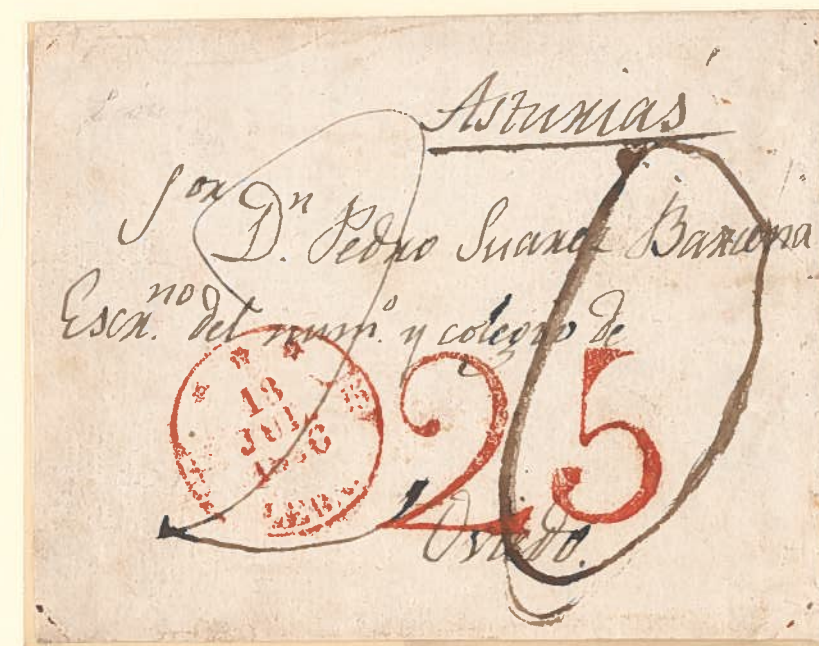 Asturias
Sor Dn. Pedro Suarez Barcena
Escr.no del num.o y colegio de
18
JUL
25
Oviedo.